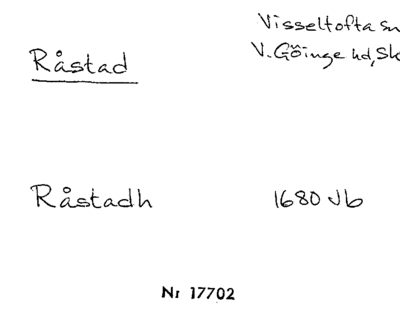 Visseltofta sn
Råstad
V. Göinge hd, Sk
Råstadh 1680 Jb
Nr 17702